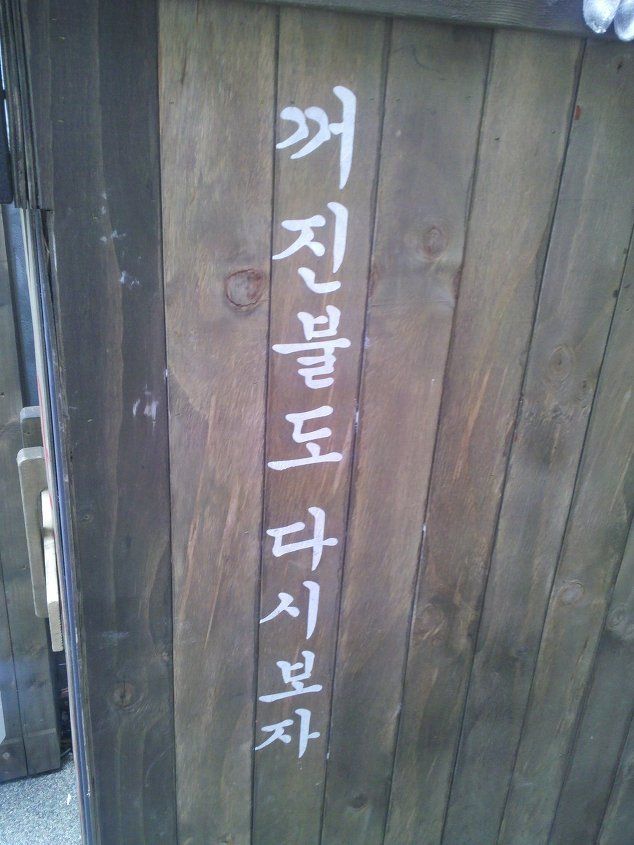 꺼진불도 다시보자